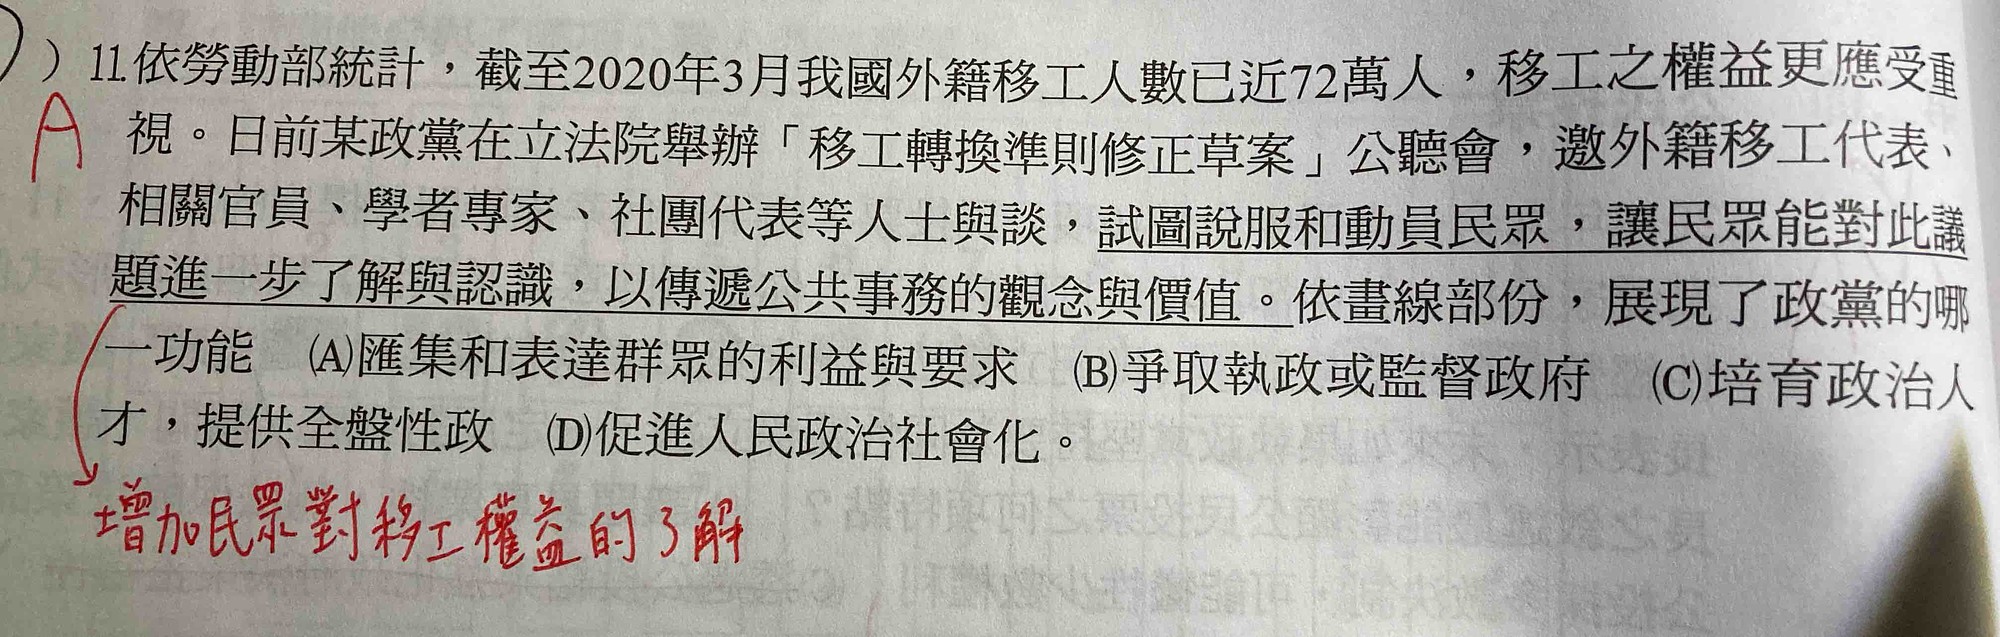 ）11.依勞動部統計，截至2020年3月我國外籍移工人數已近72萬人，移工之權益更應受重
A
視。日前某政黨在立法院舉辦「移工轉換準則修正草案」公聽會，邀外籍移工代表、
相關官員、學者專家、社團代表等人士與談，試圖說服和動員民眾，讓民眾能對此議
題進一步了解與認識，以傳遞公共事務的觀念與價值。依畫線部份，展現了政黨的哪
一功能　(A)匯集和表達群眾的利益與要求　(B)爭取執政或監督政府　(C)培育政治人
才，提供全盤性政　(D)促進人民政治社會化。
增加民眾對移工權益的了解